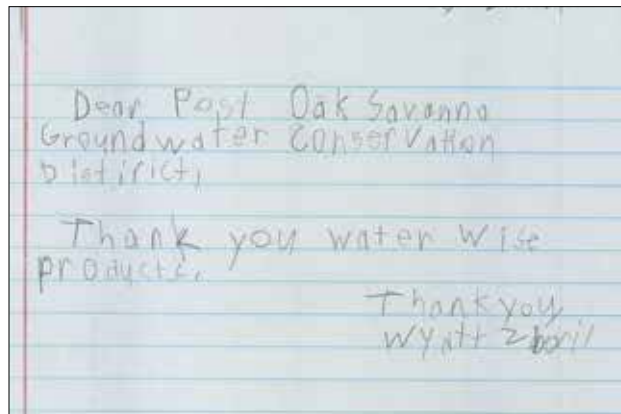 Dear Post Oak Savanna
Groundwater Conservation
Distirict,
Thank you water wise
products.
Thank you
Wyatt Zboril